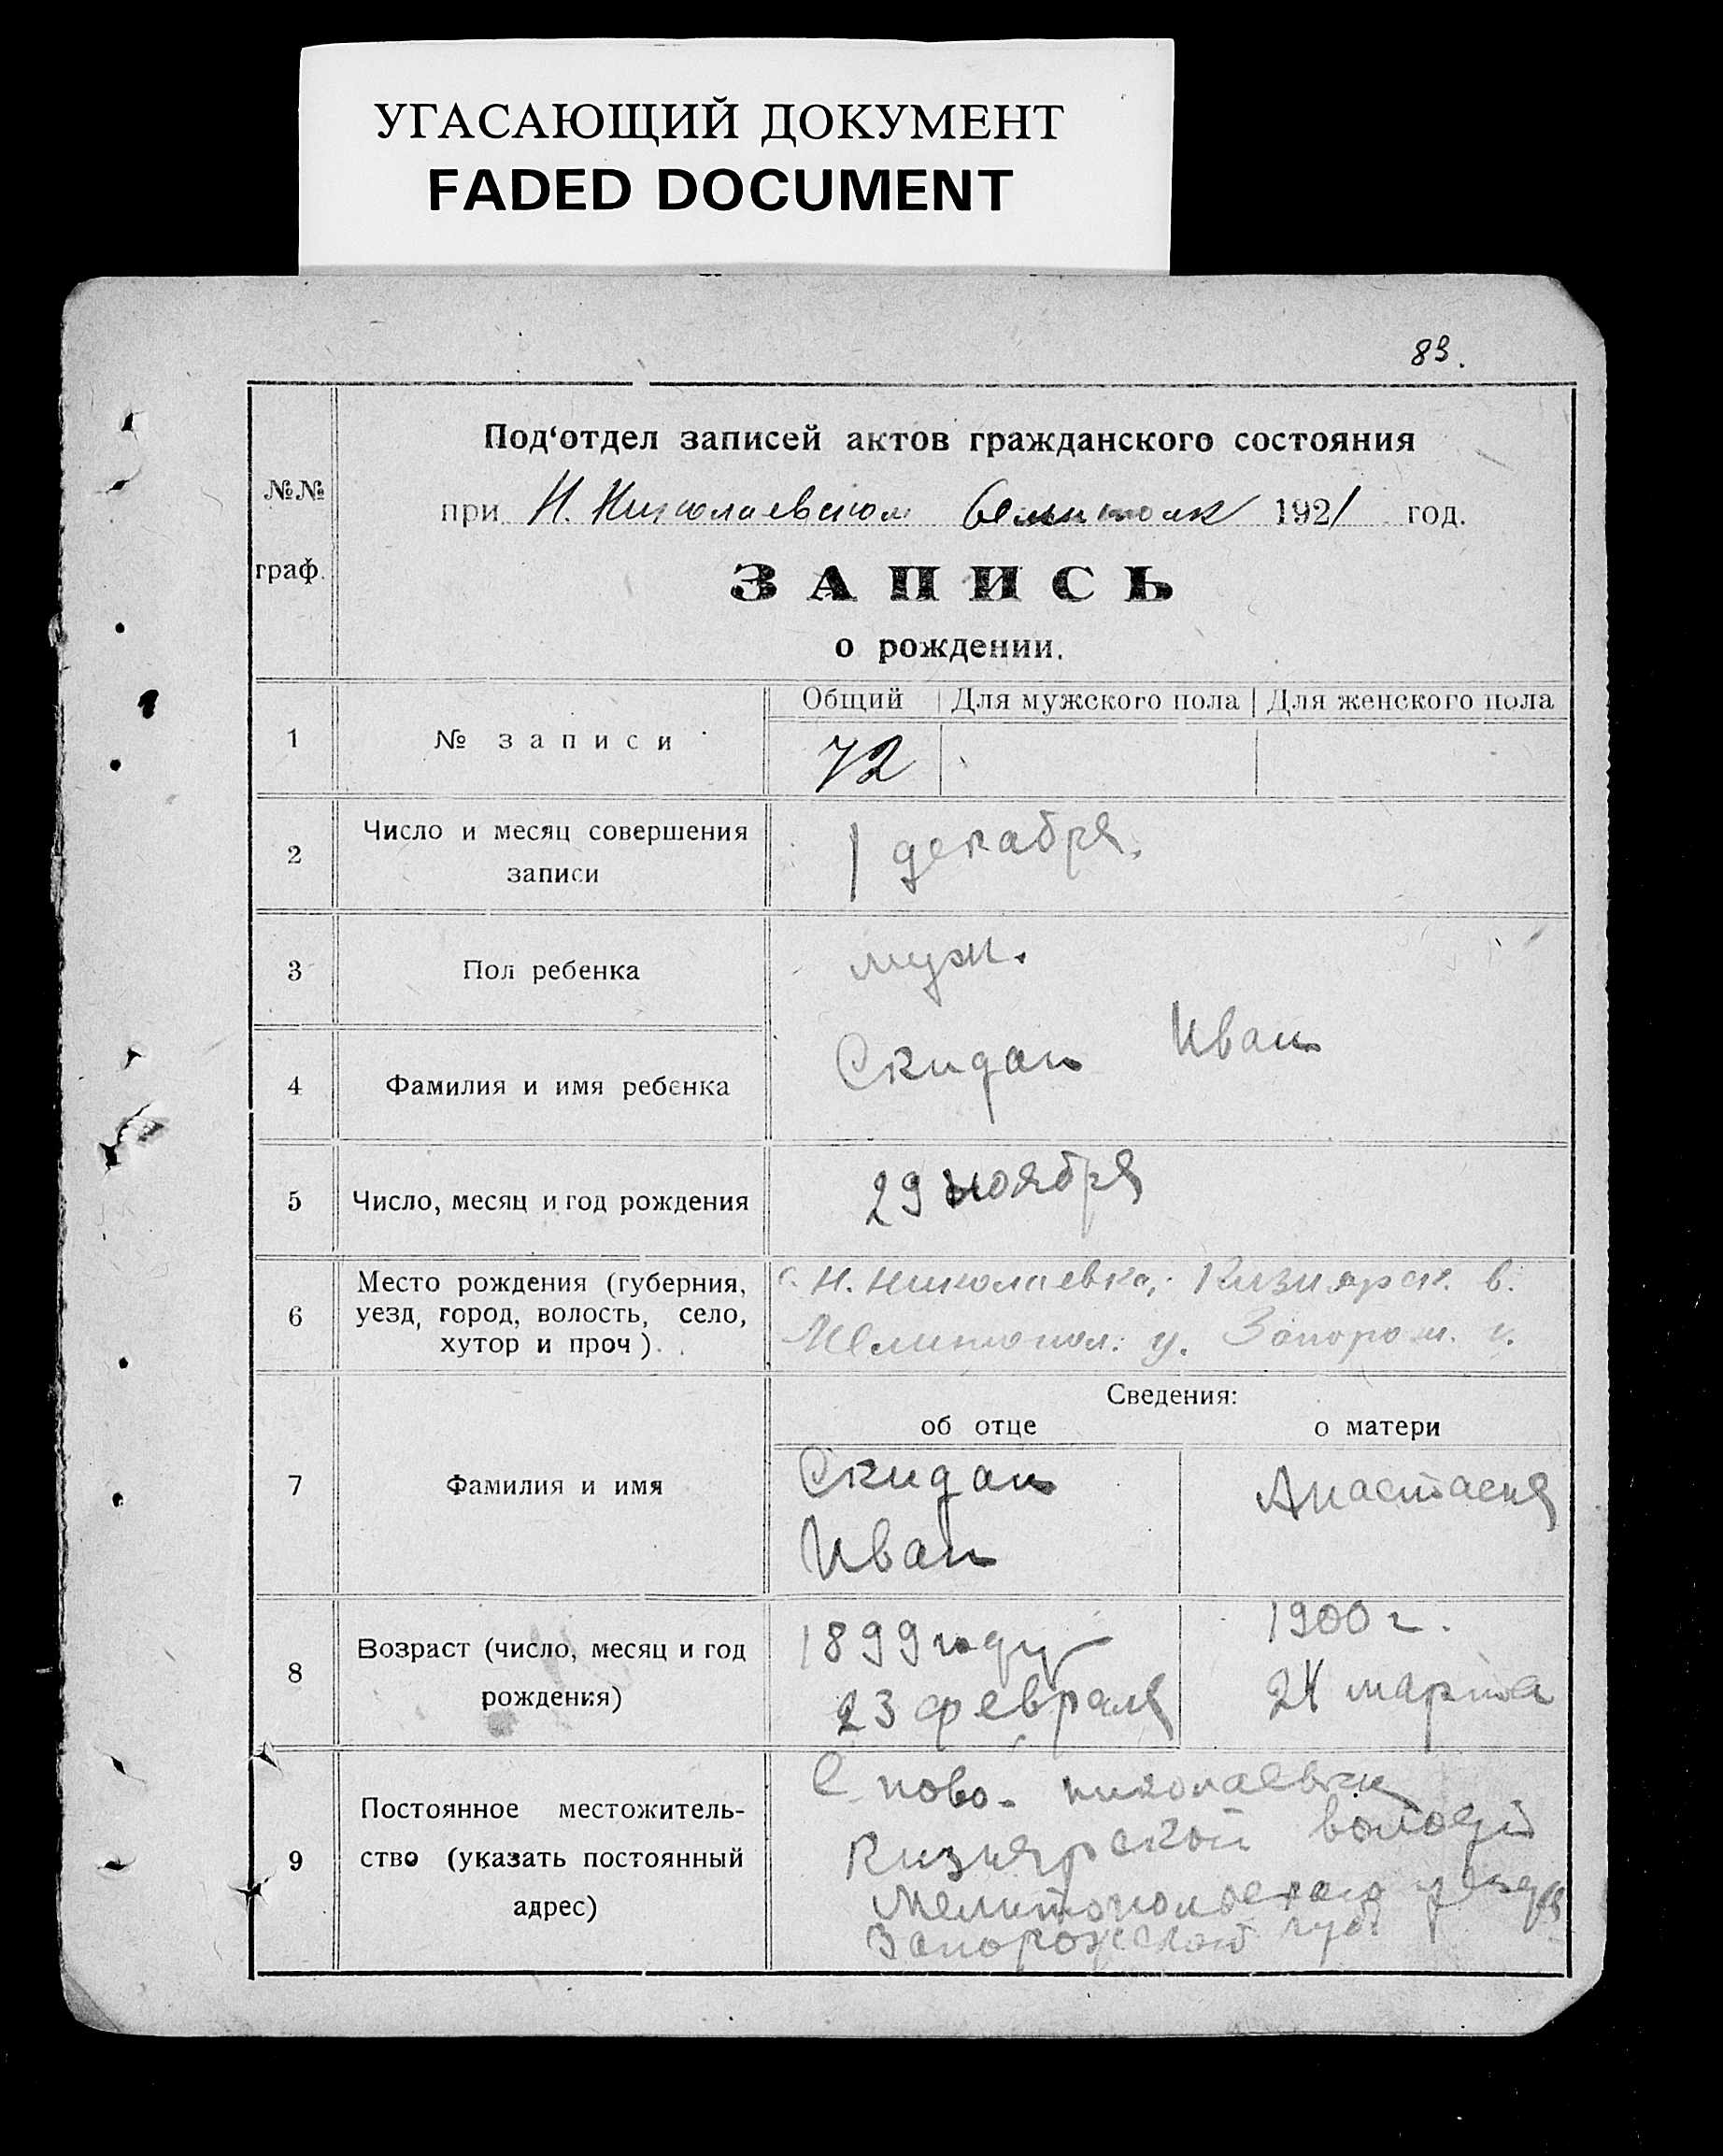 УГАСАЮЩИЙ ДОКУМЕНТ
FADED DOCUMENT
83.
№№ граф.
Под‘отдел записей актов гражданского состояния
при Н. Николаевском 1921 год.
ЗАПИСЬ
о рождении.
Общий Для мужского пола Для женского пола
1 № записи 72
2 Число и месяц совершения
записи
1 декабря.
3 Пол ребенка муж.
4 Фамилия и имя ребенка Скидан Иван
5 Число, месяц и год рождения 29 ноября
6 Место рождения (губерния,
уезд, город, волость, село,
хутор и проч).
с. Н. Николаевка, Кизиярск. в.
Мелитопол. у. Запорож. г.
Сведения:
об отце о матери
7 Фамилия и имя
Скидан
Иван
Анастасия
8 Возраст (число, месяц и год
рождения)
1899 году
23 февраля
1900 г.
24 марта
9 Постоянное местожитель-
ство (указать постоянный
адрес)
С. ново-николаевки
Кизиярской
Мелитопольского уезда
Запорожской губ